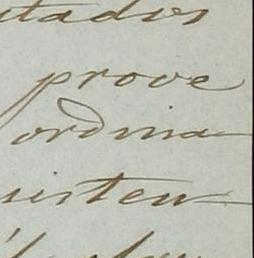 utados
prove
ordina
uisten